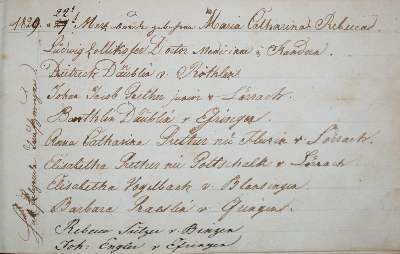 1829. d 22t Merz wurde gebohren Maria Catharina Rebecca
Ludwig Doctor Medicina in Kandern
Dietrich Däublin v Röthlen
Johan Jacob Grether junior v Lörrach.
Barthlin Däublin v Efringen
Anna Catharina Grether v Lörrach.
Elisabetha Grether né Gottschalk v Lörrach
Elisabetha Vogelbach v Blansingen
Barbara Praeslin v
Rebecca v Bingen
Joh: Engler v Efringen